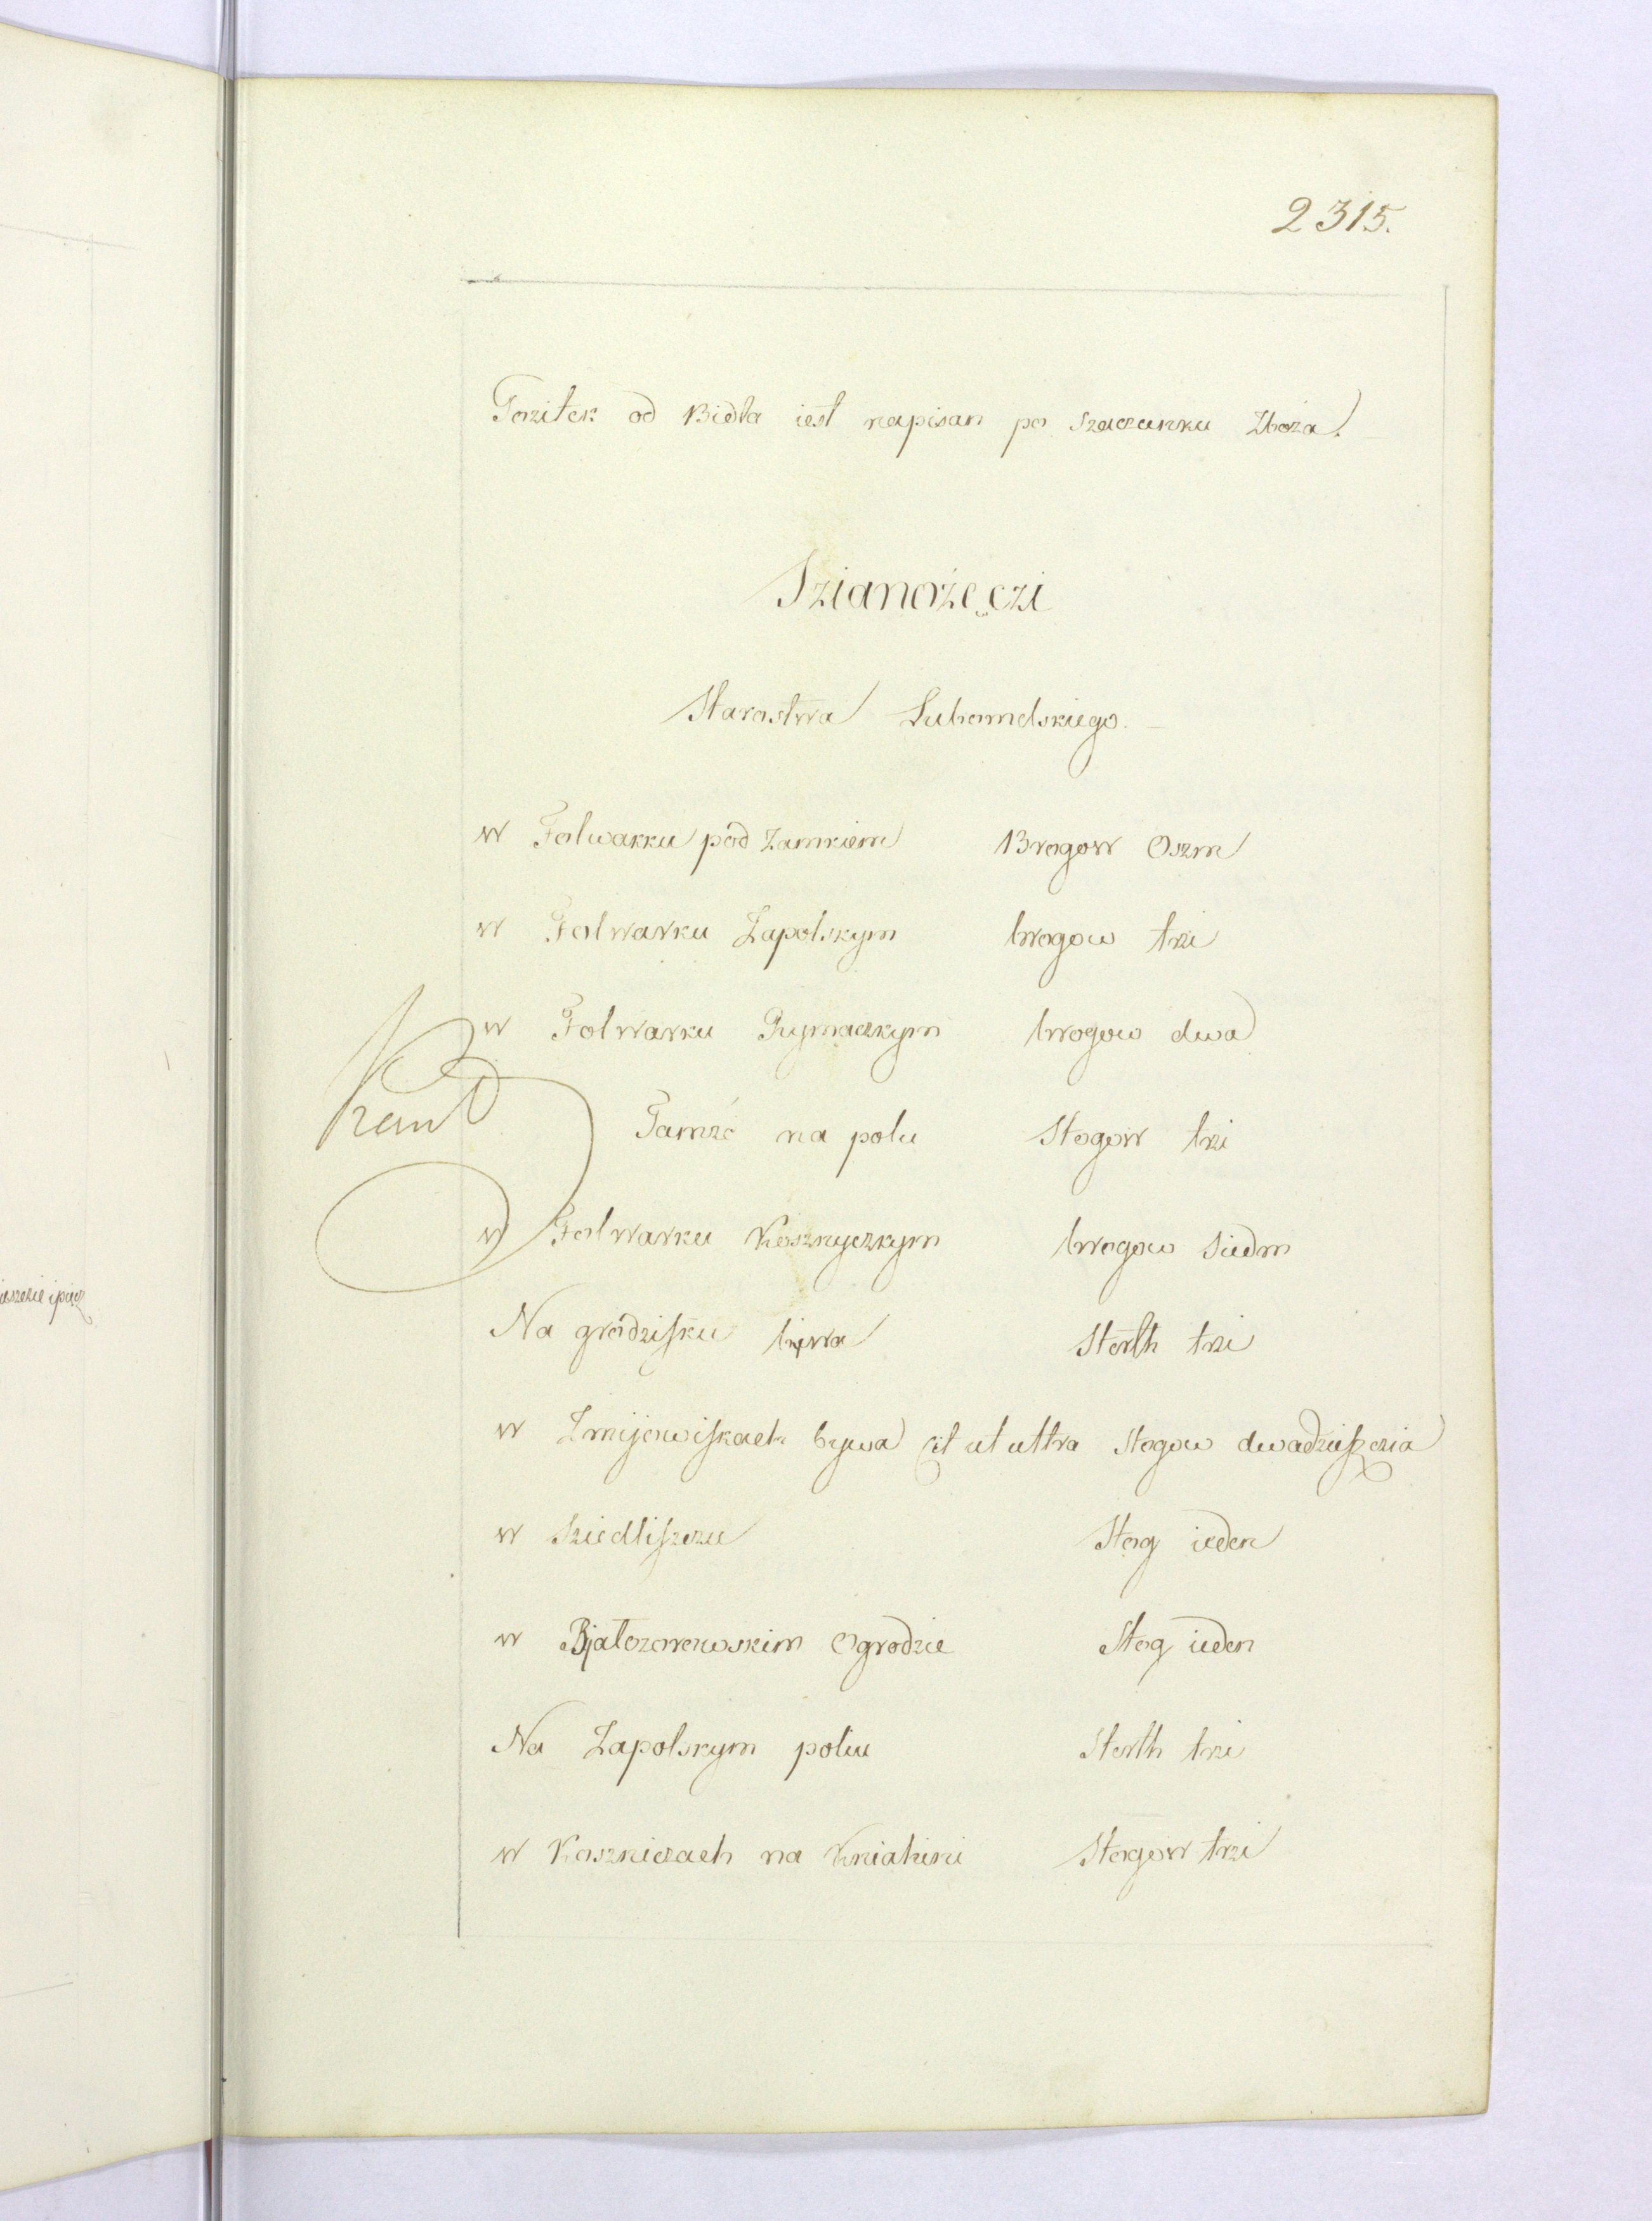 2315.
Pozitek od Bidla iest napisan po szaczunku Zboza.
Szianożęczi
Starostwa Lubomelskiego.
w Folwarku pod Zamkiem Brogow Oszm
w Folwarku Zapolskym brogow trzi
w Folwarku Rymaczkym brogow dwa
Tamże na polu Stogow trzi
w Folwarku Kosznyczkym brogow siedm
Na grodzisku bywa Sterth trzi
w Zmijowiskach bywa et ut ultra stogow dwadzieszczia
w Sziedliszczu Stog ieden
w Bjalozorowskim Ogrodzie Stog ieden
Na Zapolskym poliu Sterth trzi
w Koszniczach na Kniahini Stogow trzi